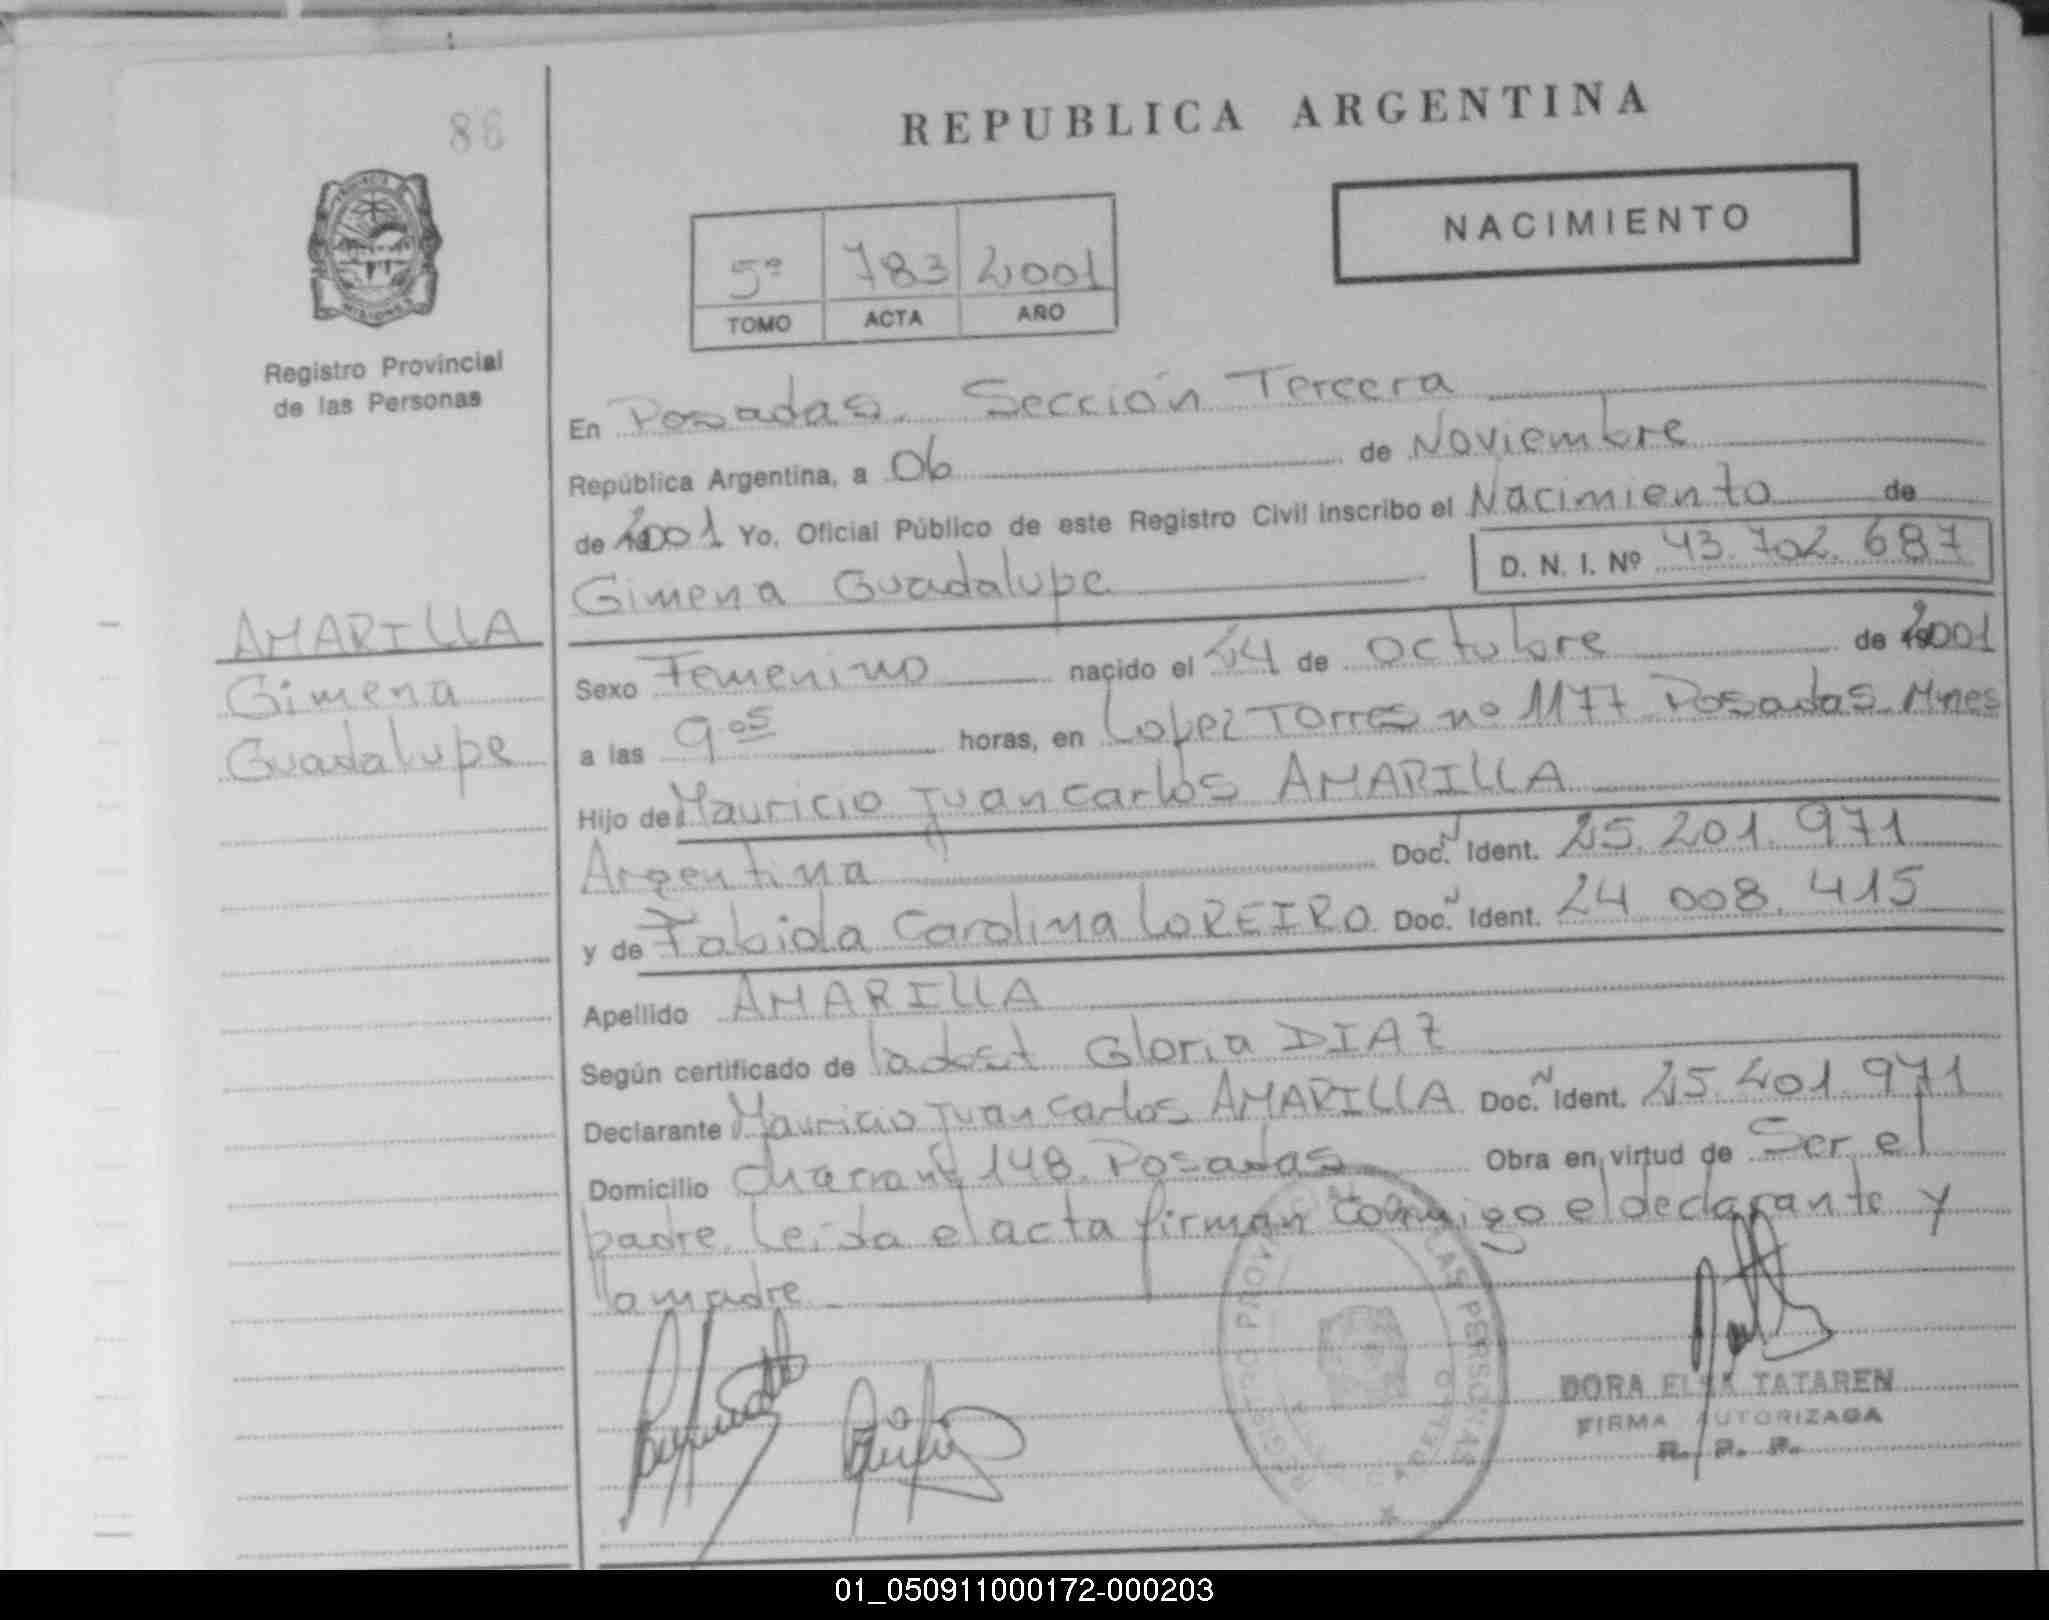 86
REPUBLICA ARGENTINA
NACIMIENTO
5º 783 2001
TOMO ACTA AÑO
Registro Provincial
de las Personas
En Posadas, Sección Tercera
República Argentina, a 06 de Noviembre
de 2001 Yo, Oficial Público de este Registro Civil inscribo el Nacimiento de
Gimena Guadalupe D. N. I. Nº 43.702.687
AMARILLA
Gimena
Guadalupe
Sexo Femenino nacido el 24 de Octubre de 2001
a las 9 05 horas, en Lopez Torres nº 1177 Posadas Mnes
Hijo de Mauricio Juan Carlos AMARILLA
Argentina Doc. N Ident. 25.201.971
y de Fabiola Carolina LOREIRO Doc. N Ident. 24 008.415
Apellido AMARILLA
Según certificado de Gloria DIAZ
Declarante Mauricio Juan Carlos AMARILLA Doc. N Ident. 25.201.971
Domicilio 148. Posadas Obra en virtud de Ser el
padre. Leida el acta firman conmigo el declarante y
la madre
REGISTRO PROVINCIAL DE LAS PERSONAS
DORA ELSA TATAREN
FIRMA AUTORIZADA
R. P. P.
01_050911000172-000203